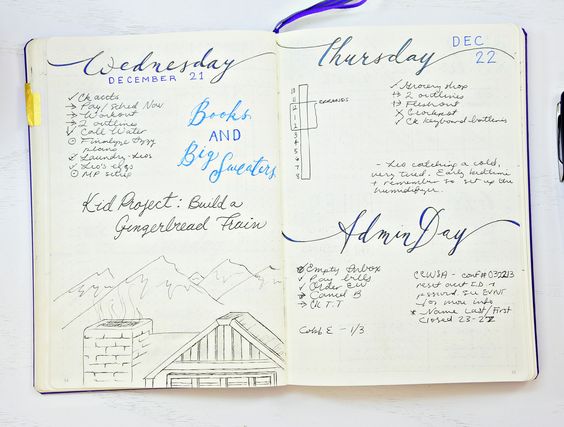 Wednesday
DECEMBER 21
✓ Ck accts
→ Pay/Sched Nov
→ Workout
→ 2 outlines
✓ Call Water
Finalize
plans
✓ Laundry - Leo's
✓ Leo's eggs
MP setup
Books
AND
Big Sweaters
Kid Project: Build a
Gingerbread Train
Thursday
DEC
22
10
11
12
1
2
3
4
5
6
7
8
ERRANDS
✓ Grocery shop
↔ 2 outlines
↔ Flesh out
X Crockpot
✓ Ck keyboard batteries
- Leo catching a cold,
very tired. Early bedtime
+ remember to set up the
humidifier.
Admin Day
Empty Inbox
✓ Pay bills
✓ Order
Cancel B
→ Ck T.T
E - 1/3
- conf# 032213
reset acct I.D. +
password. See EVNT
for more info
* Name Last/First
Closed 23-27